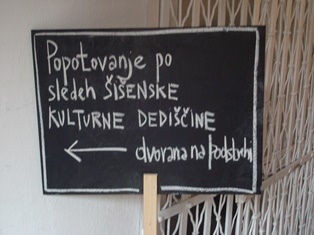 Popotovanje po
sledeh ŠIŠENSKE
KULTURNE DEDIŠČINE
dvorana na Podstrehi